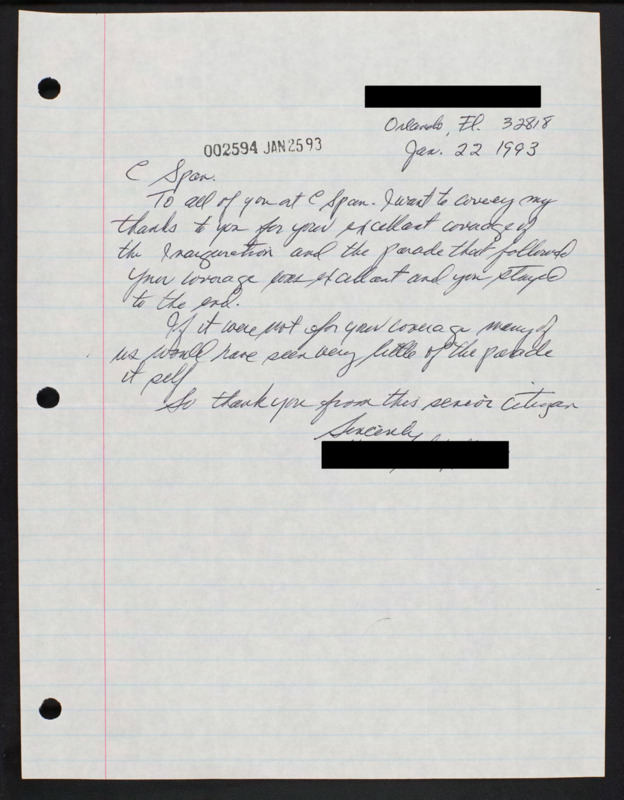 Orlando, Fl. 32818
002594 JAN 25 93
Jan. 22 1993
C Span.
To all of you at C Span. I want to convey my
thanks to you for your excellant coverage of
the Inauguration and the parade that followed
your coverage was excellant and you stayed
to the end.
If it were not for your coverage many of
us would have seen very little of the parade
it self
So thank you from this senior citizen
Sincerely